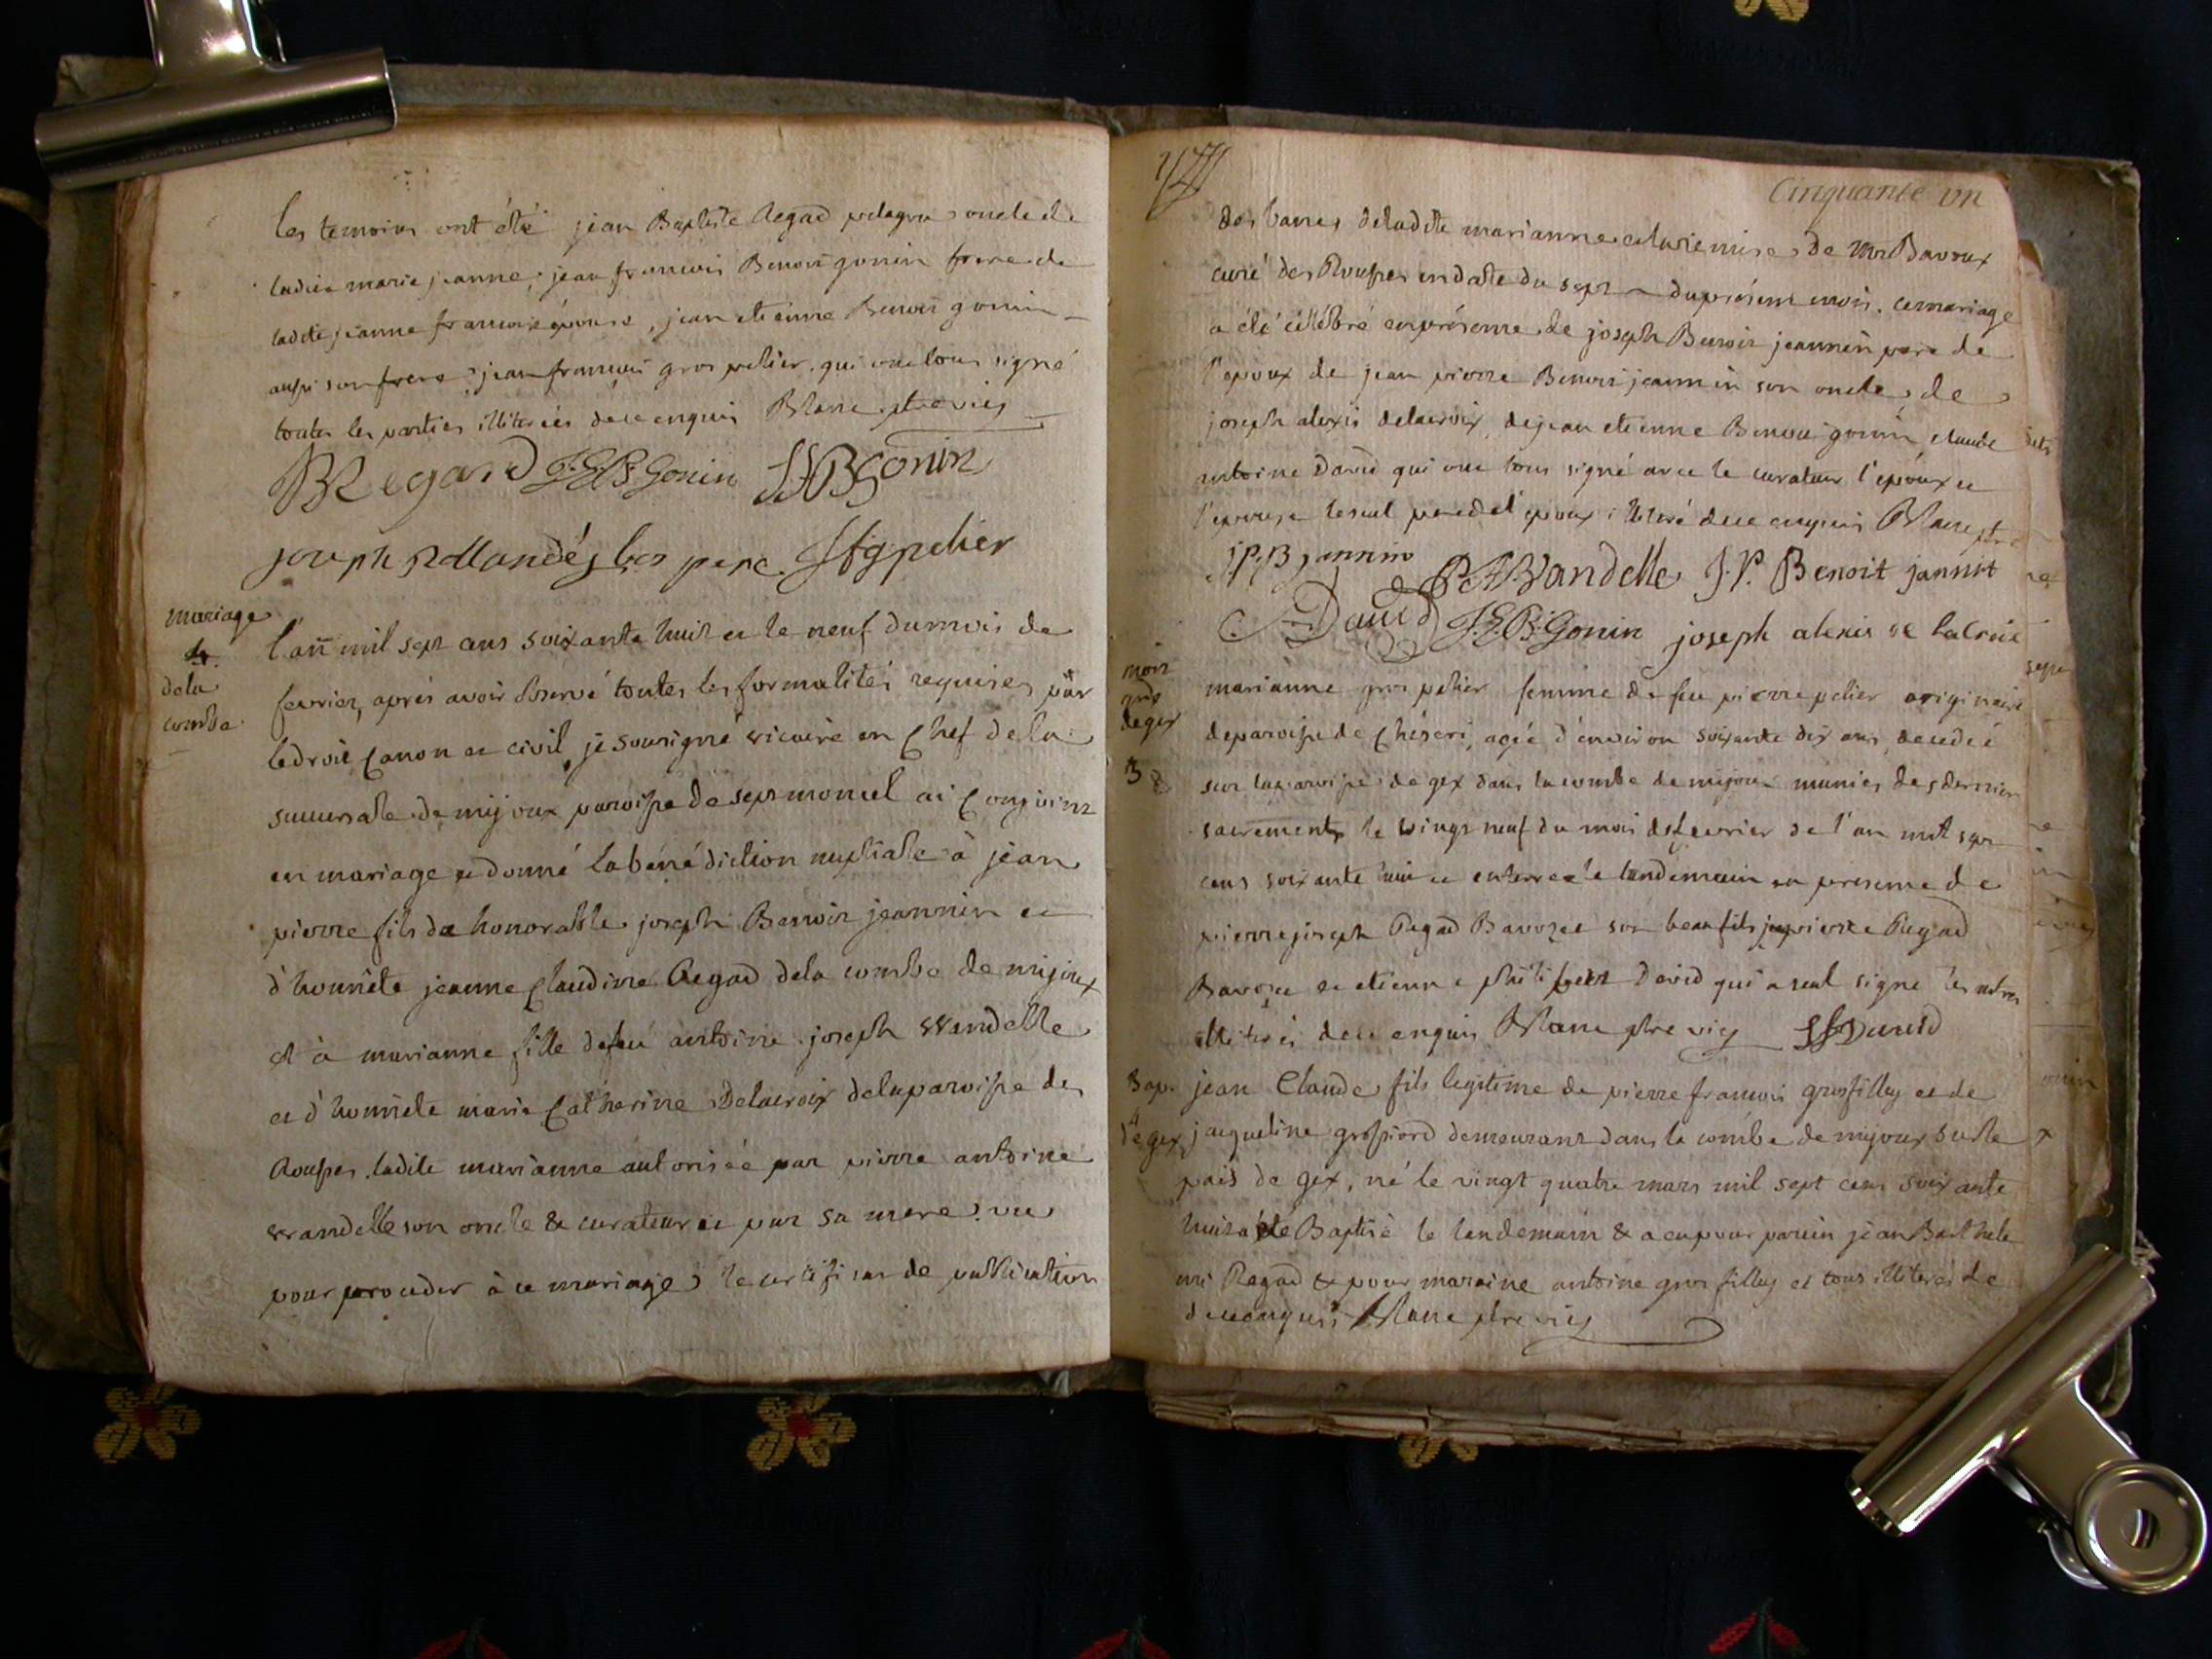 les temoins ont été jean Baptiste Regad pelagru oncle de
ladite marie jeanne, jean francois Benoit gonin frere de
ladite jeanne francoise épouse, jean etienne Benoit gonin
aussi son frere, jean francois gros pelier qui ont tous signé
toutes les parties illiterées de ce enquis Blanc ptre vic
JBRegard J.E.Bt Gonin JFBGonin
joseph Rollandéz les pere Jfgpelier
mariage
4.
dela
combe
l'an mil sept cens soixante huit et le neuf du mois de
fevrier, aprés avoir observé toutes les formalités requises par
le droit Canon et civil, je sousigné vicaire en Chef de la
succursale de mijoux paroisse de septmoncel ai Conjoint
en mariage et donné la bénédiction nuptiale à jean
pierre fils de honorable joseph Benoit jeannin et
d'honnête jeanne Claudine Regad de la combe de mijoux
et à marianne fille de feu antoine joseph Vandelle
et d'honnete marie Catherine Delacroix de la paroisse des
Rousses. ladite marianne autorisée par pierre antoine
vandelle son oncle & curateur et par sa mere. vu
pour proceder à ce mariage le certificat de publication
Cinquante un
des bans de ladite marianne et la remise de Mr Bavoux
curé des Rousses en date du sept du présent mois. ce mariage
a été célébré en présence de joseph Benoit jeannin pere de
l'epoux de jean pierre Benoit jeannin son oncle, de
joseph alexis delacroix, de jean etienne Benoit gonin, claude
antoine David qui ont tous signé avec le curateur l'epoux et
l'epouse le seul pere de l'epoux illiteré de ce enquis Blanc ptre
J.P.B jannin P.A Vandelle J.P. Benoit jannit
C A David J.E.Bt Gonin joseph alexis de lacroix
mort
de gex
3
marianne gros pelier femme de feu pierre pelier originaire
de paroisse de Chéseri, agée d'environ soixante dix ans, decedée
sur la paroisse de gex dans la combe de mijoux munies des derniers
sacrements le vingt neuf du mois de fevrier de l'an mil sept
cens soixante huit et enterrée le lendemain en presence de
pierre joseph Regad Bavozet son beau fils, pierre Regad
Bavozet et etienne philibert David qui a seul signé les autres
illiterés de ce enquis Blanc ptre vic David
Bap.
de gex
jean Claude fils legitime de pierre francois grosfilley et de
jacqueline grospiord demeurant dans la combe de mijoux sur le
païs de gex, né le vingt quatre mars mil sept cens soixante
huit a été Baptisé le lendemain & a eu pour parein jean Barthele
mi Regad & pour maraine antoine gros filley et tous illiterés de
de ce enquis Blanc ptre vic